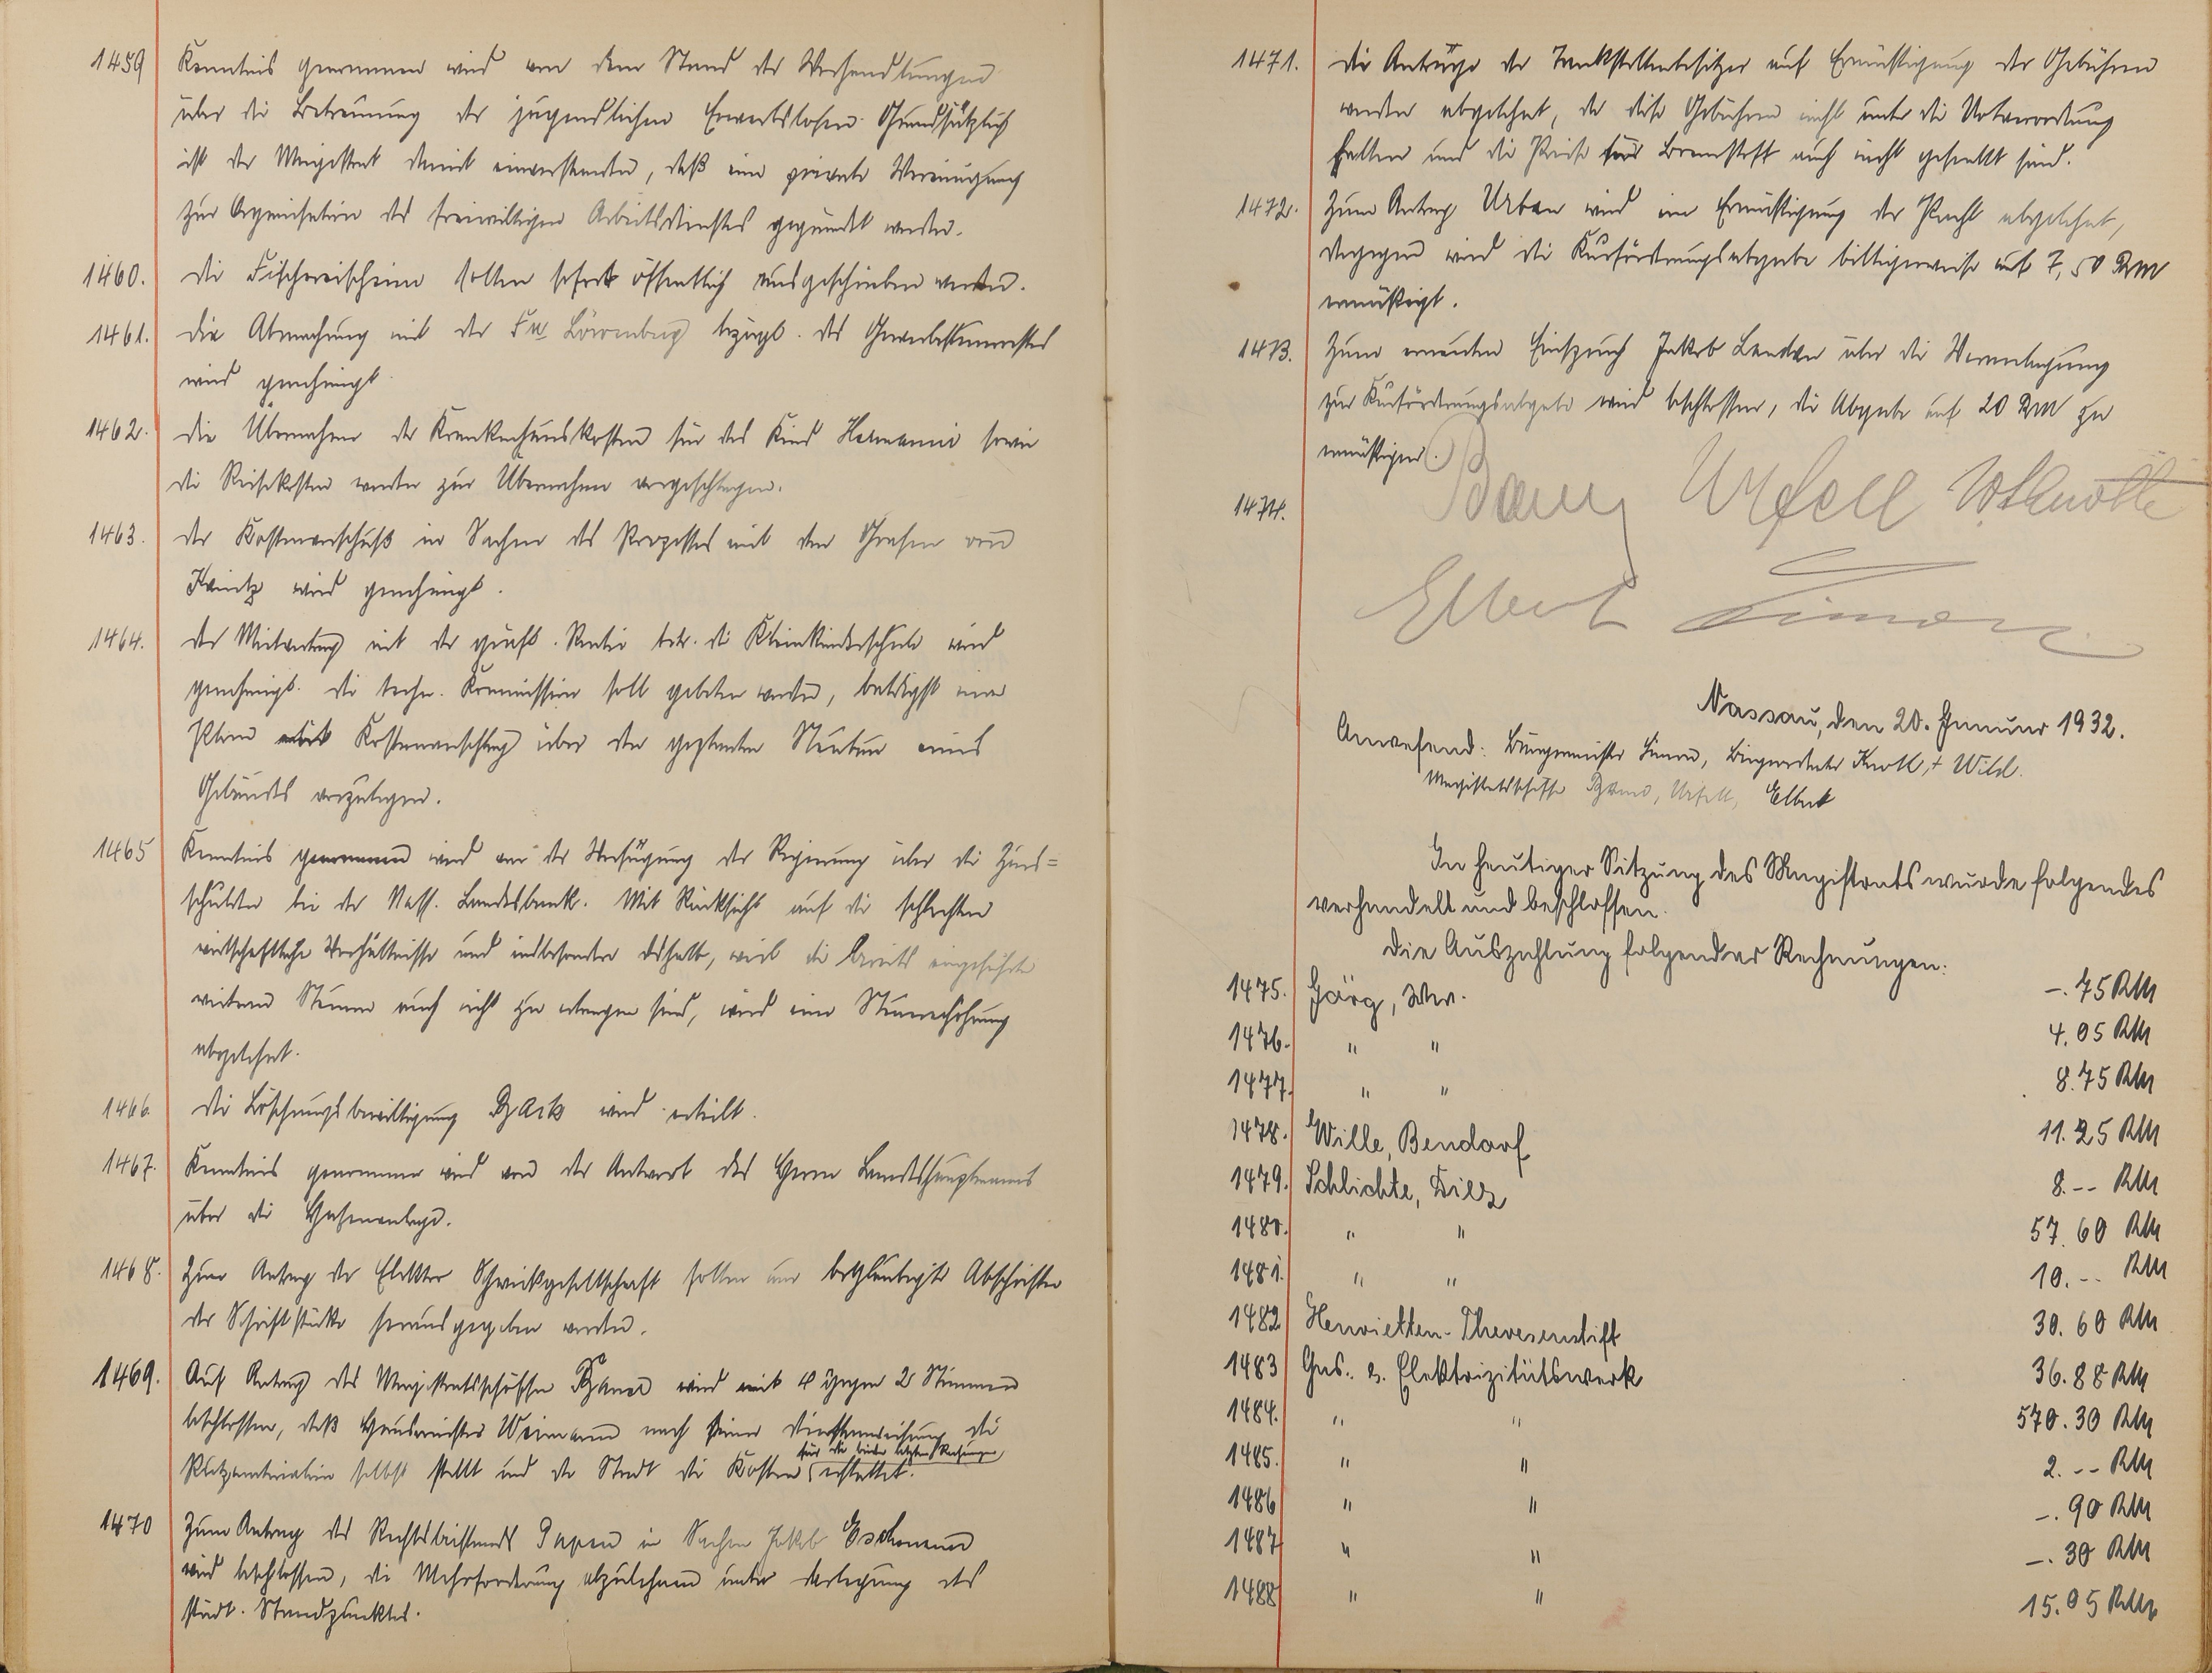 1459 Kenntnis genommen wird von dem Stand der Verhandlungen
über die Betreuung der jugendlichen Erwerbslosen. Grundsätzlich
ist der Magistrat damit einverstanden, daß eine private Vereinigung
zur Organisation des freiwilligen Arbeitsdienstes gegründet werde.
1460. Die Fischereischeine sollen sofort öffentlich ausgeschrieben werden.
1461. Die Abmachung mit der Fa Löwenberg bezügl. des Gewerbesteuerrestes
wird genehmigt.
1462. Die Übernahme der Krankenhauskosten für das Kind Hermanni sowie
die Reisekosten werden zur Übernahme vorgeschlagen.
1463. Der Kostenvorschuß in Sachen des Prozesses mit den Grafen von
Kanitz wird genehmigt.
1464. Der Mietvertrag mit der gräfl. Rentei betr. die Kleinkinderschule wird
genehmigt. Die techn. Kommission soll gebeten werden, baldigst einen
Plan mit Kostenanschlag über den geplanten Neubau eines
Gebäudes vorzulegen.
1465 Kenntnis genommen wird von der Verfügung der Regierung über die Zins=
schulden bei der Nass. Landesbank. Mit Rücksicht auf die schlechten
wirtschaftliche Verhältnisse und insbesondere deshalb, weil die bereits eingeführte
weiteren Steuern auch nicht zu erlangen sind, wird eine Steuererhöhung
abgelehnt.
1466. Die Löschungsbewilligung wird erteilt.
1467. Kenntnis genommen wird von der Antwort des Herrn Landeshauptmanns
über die Hafenanlage.
1468. Zum Antrag der Elektro Schweißgesellschaft sollen nur beglaubigte Abschriften
der Schriftstücke herausgegeben werden.
1469. Auf Antrag des Magistratsschöffen wird mit 4 gegen 2 Stimmen
beschlossen, daß Hausmeister Weimann nach seiner Dienstanweisung die
Putzmaterialien selbst stellt und der Stadt die Kosten für die beiden letzten Rechnungen erstattet.
1470 Zum Antrag des Rechtsbeistands Papen in Sachen Jakob Eschmann
wird beschlossen, die Mehrforderung abzulehnen unter Darlegung des
städt. Standpunktes.
1471. Die Anträge der Tankstellenbesitzer auf Ermäßigung der Gebühren
werden abgelehnt, da diese Gebühren nicht unter die Notverordnung
fallen und die Preise für Brennstoff auch nicht gesenkt sind.
1472. Zum Antrag Urban wird eine Ermäßigung der Pacht abgelehnt,
dagegen wird die Kurförderungsabgabe billigerweise auf 7,50 RM
ermäßigt.
1473. Zum erneuten Einspruch Jakob Landau über die Veranlagung
zur Kurförderungsabgabe wird beschlossen, die Abgabe auf 20 RM zu
ermäßigen.
1474. Urfell W. Knoth
Elbert Simon
Nassau, den 20. Januar 1932.
Anwesend: Bürgermeister Simon, Beigeordneter Knoth, + Wild.
Magistratsschöffe Urfell, Elbert
In heutiger Sitzung des Magistrats wurde folgendes
verhandelt und beschlossen.
Die Auszahlung folgender Rechnungen:
1475. Görg, Ww. –.75 RM
1476. " " 4.05 RM
1477. " " 8.75 RM
1478. Wille, Bendorf 11.25 RM
1479. Schlichte, Diez 8.-- RM
1480. " " 57.60 RM
1481. " " 10.-- RM
1482 Henrietten-Theresenstift 30.60 RM
1483 Gas- u. Elektrizitätswerk 36.88 RM
1484. " " 570.30 RM
1485. " " 2.-- RM
1486 " " –.90 RM
1487 " " –.30 RM
1488 " " 15.05 RM